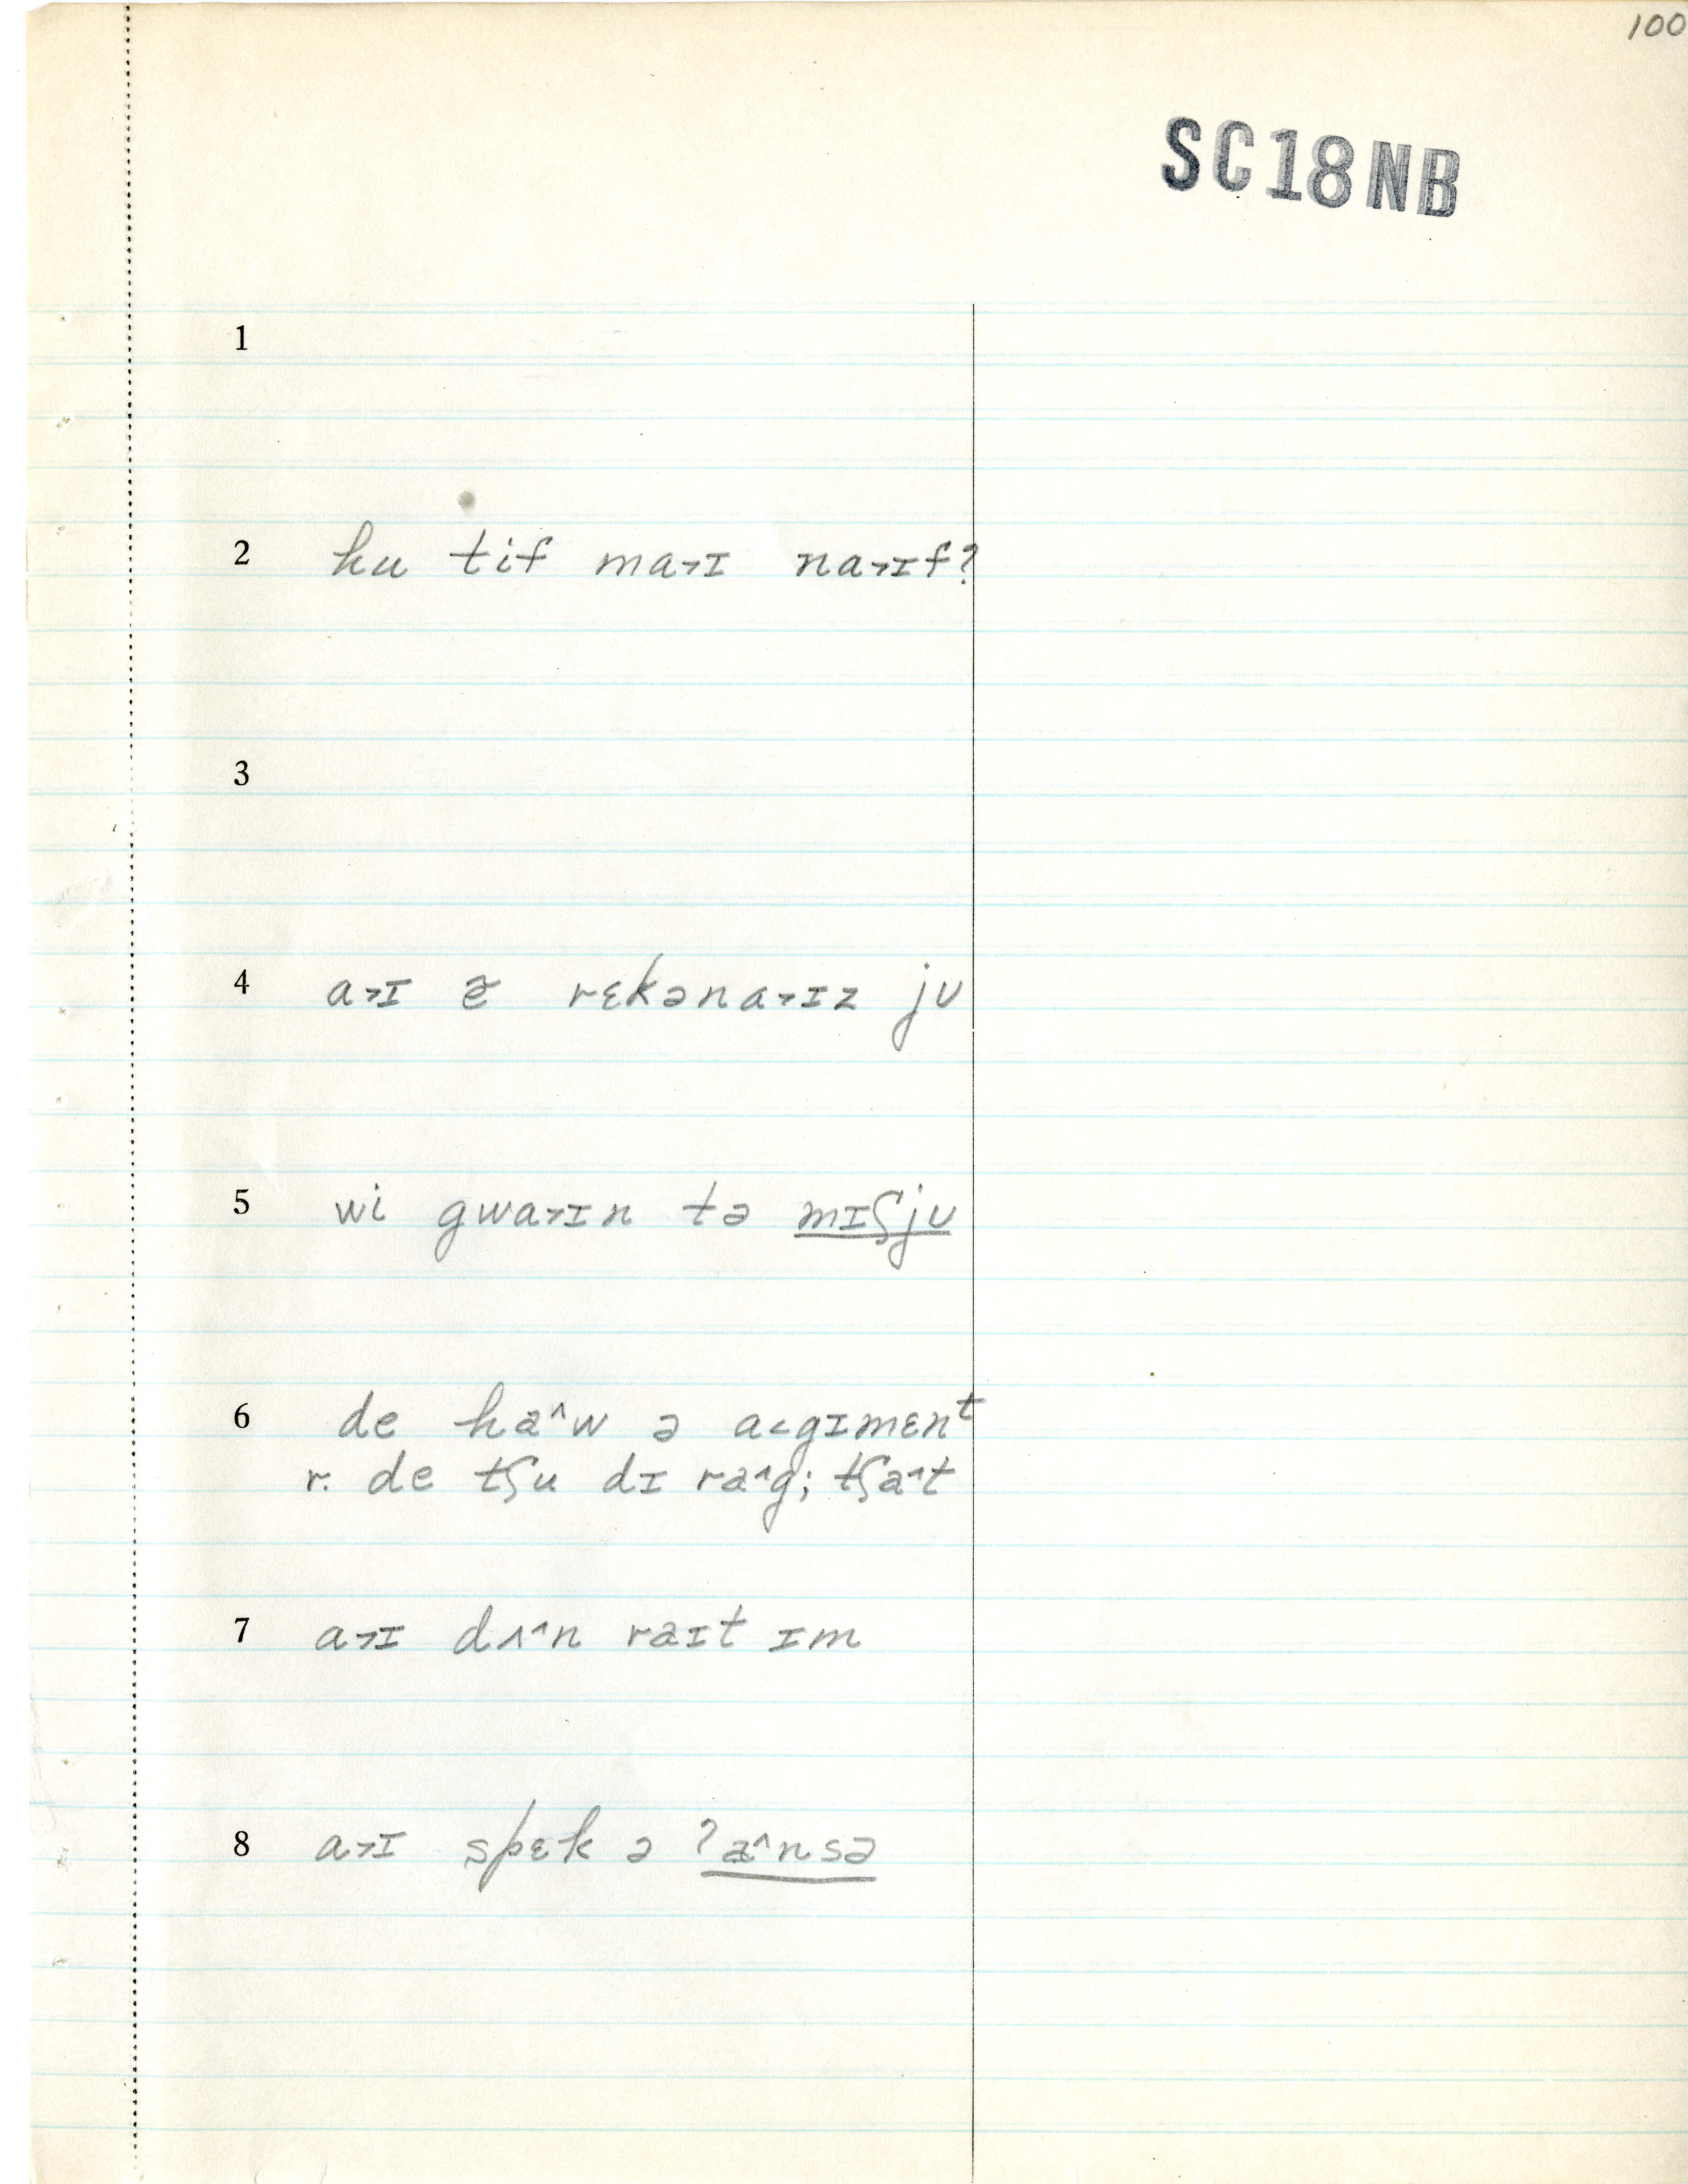 100
SC18NB
1
2 hu tif ma˃ɪ na˃ɪf?
3
4 a˃ɪ ẽ rɛkəna˃ɪz jʊ
5 wi gwa˃ɪn tə mɪʃjʊ
6 de ha^w ə a˂gɪmɛnᵗ
r. de tʃu dɪ ra^g; tʃa^t
7 a˃ɪ dʌ^n raɪt ɪm
8 a˃ɪ spɛk ə ʔa^nsə